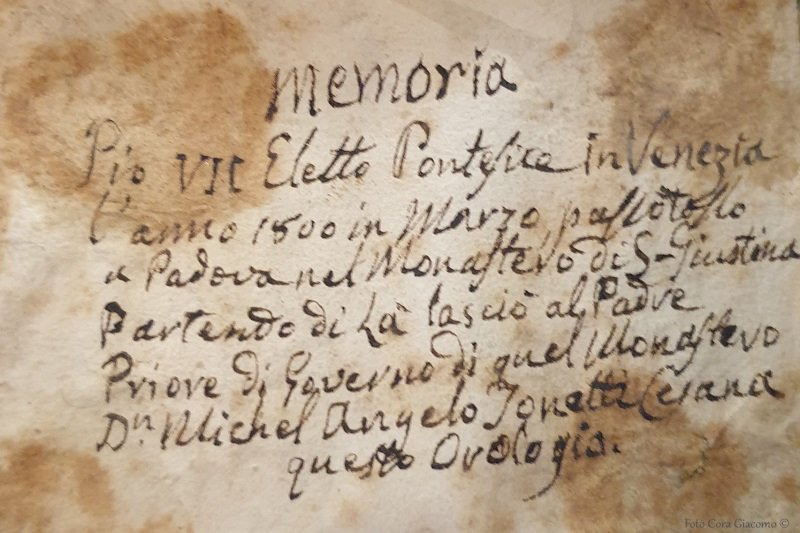 Memoria
Pio VII Eletto Pontefice in Venezia
l'anno 1800 in Marzo, passò tosto
a Padova nel Monastero di S. Giustina
Partendo di Là lasciò al Padre
Priore di Governo di quel Monastero
Dn. Michel Angelo Tonetti Cesana
questo Orologio.
Foto Cora Giacomo ©